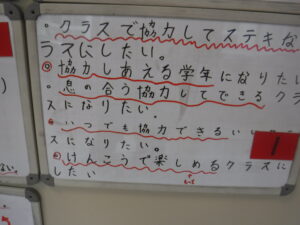 ・クラスで協力してステキな
ラスにしたい。
協力しあえる学年になりた
・息の合う協力してできるクラ
スになりたい。
いつでも協力できるいい
スになりたい。
けんこうで楽しめるクラスに
したい